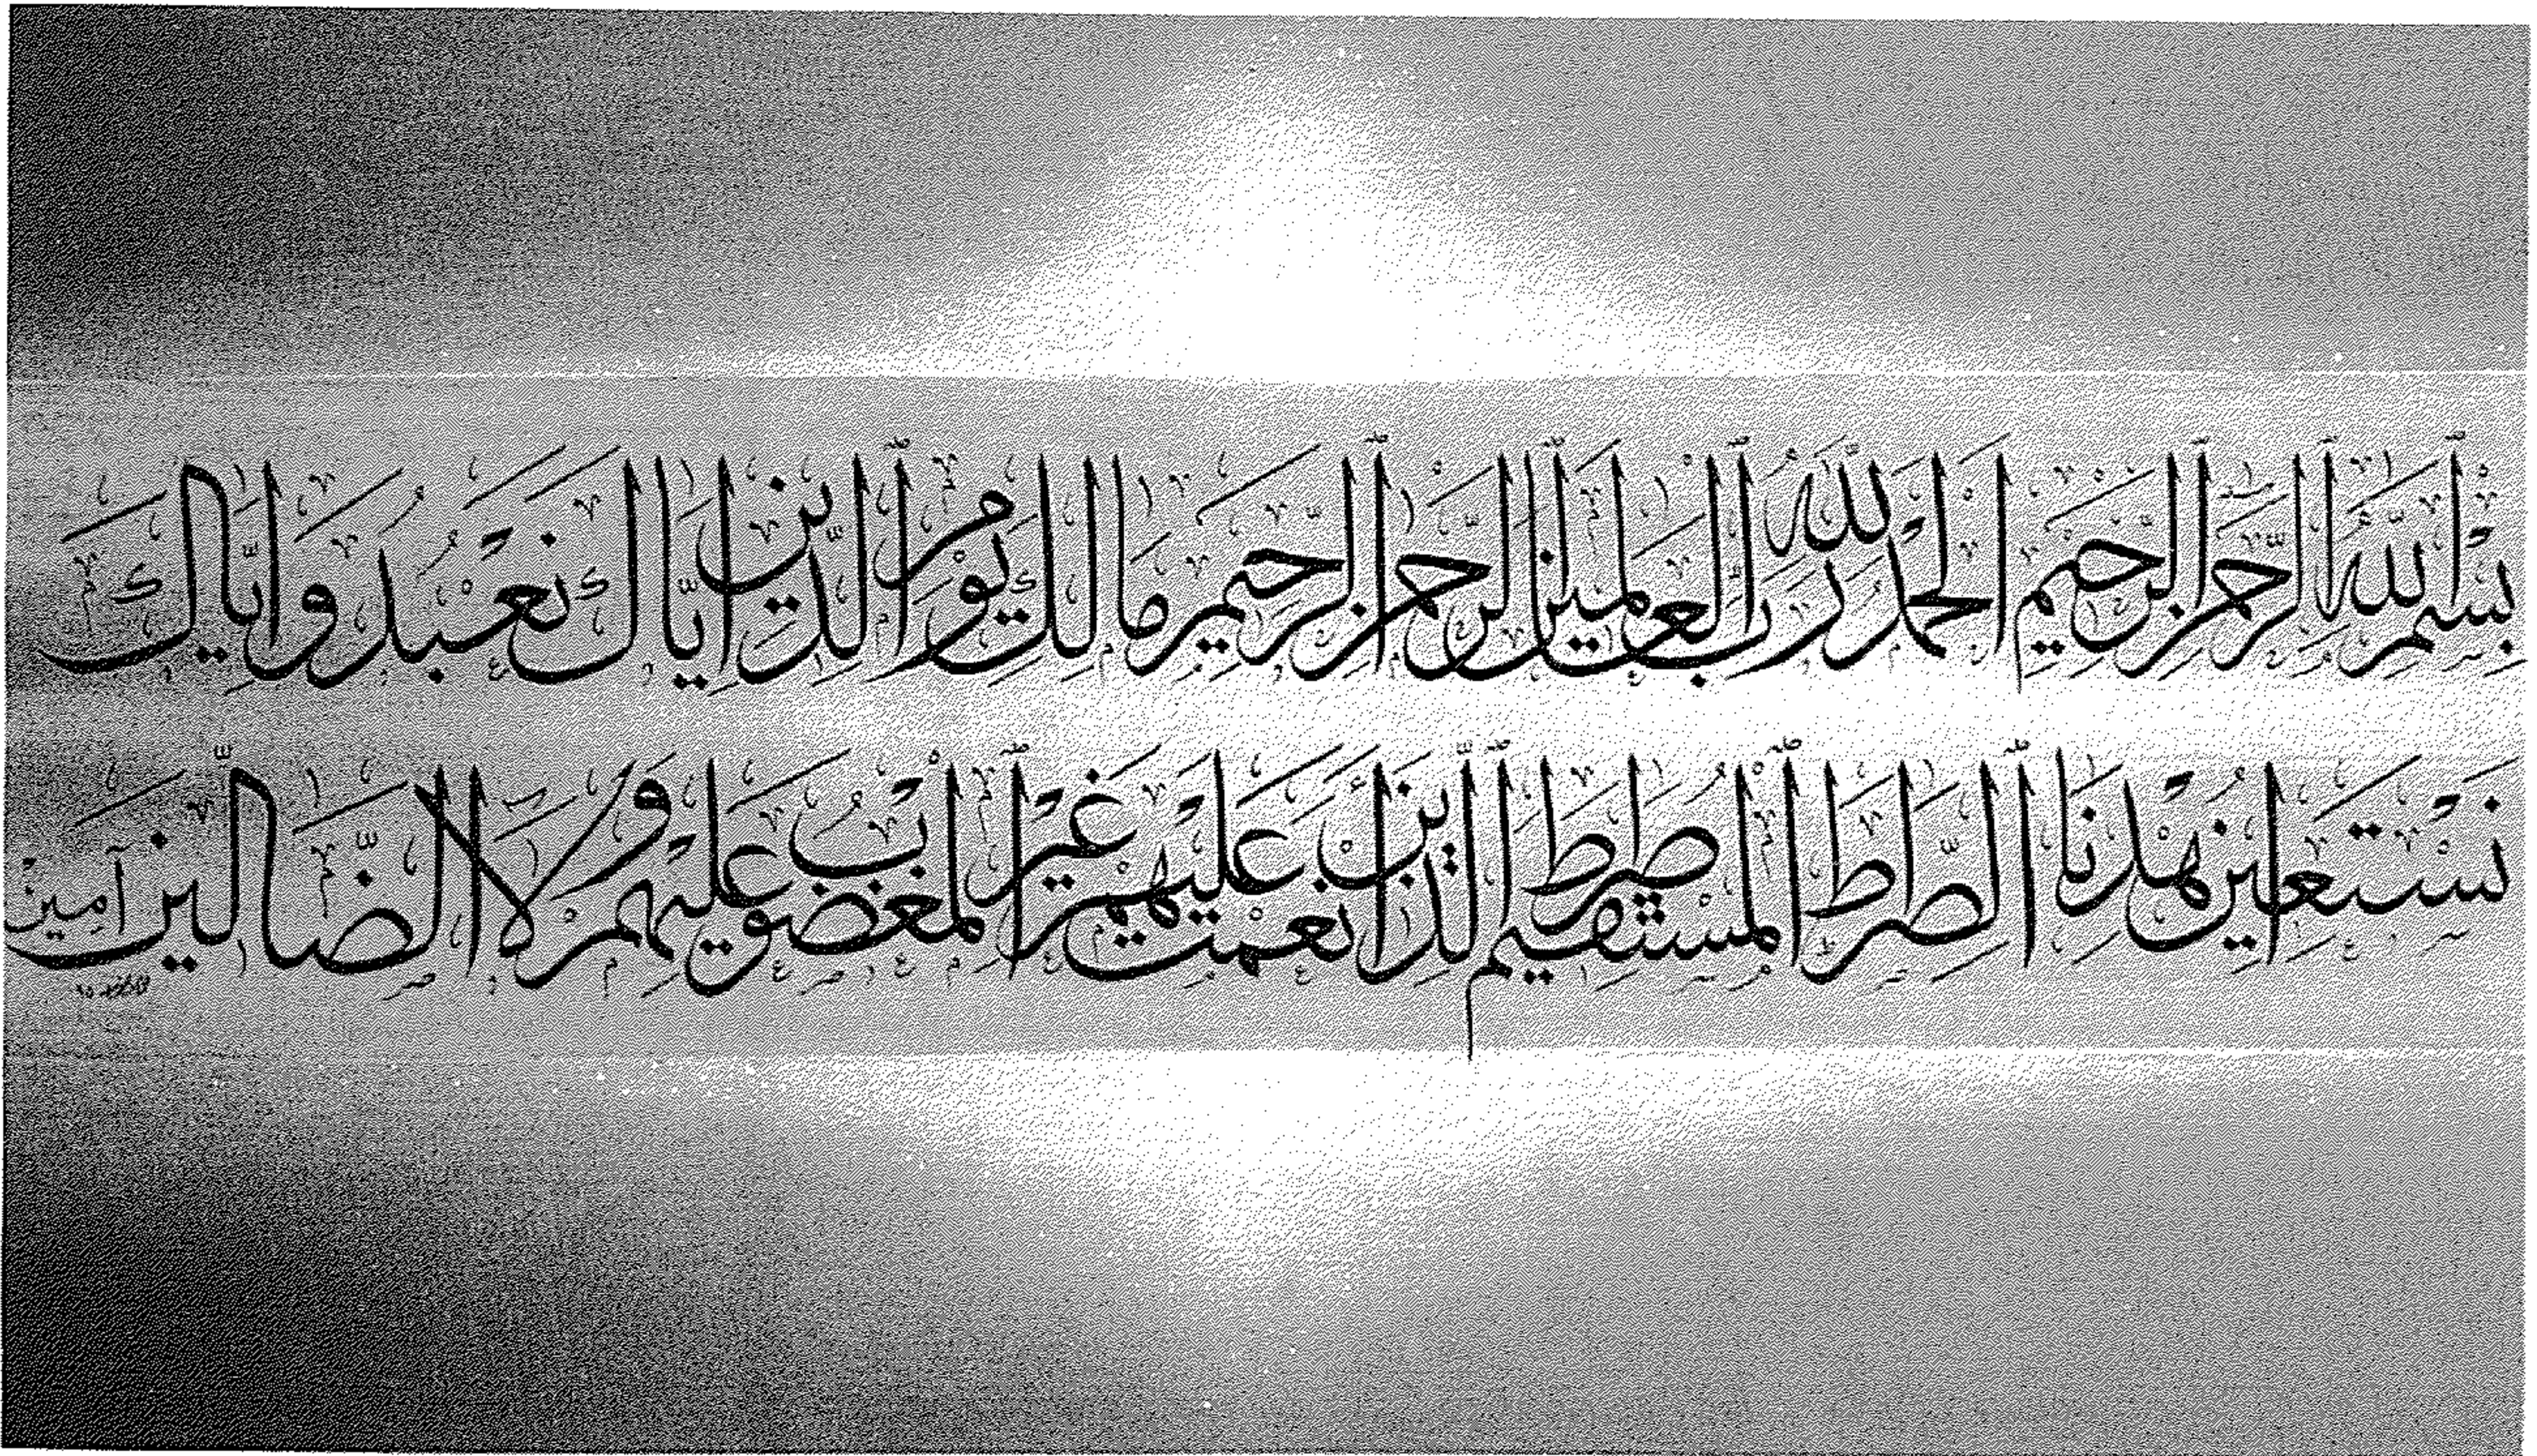 بِسْمِ اللّٰهِ الرَّحْمٰنِ الرَّحِيمِ اَلْحَمْدُ لِلّٰهِ رَبِّ الْعَالَمِينَ الرَّحْمٰنِ الرَّحِيمِ مَالِكِ يَوْمِ الدِّينِ اِيَّاكَ نَعْبُدُ وَاِيَّاكَ
نَسْتَعِينُ اِهْدِنَا الصِّرَاطَ الْمُسْتَقِيمَ صِرَاطَ الَّذِينَ اَنْعَمْتَ عَلَيْهِمْ غَيْرِ الْمَغْضُوبِ عَلَيْهِمْ وَلَا الضَّالِّينَ آمِينْ